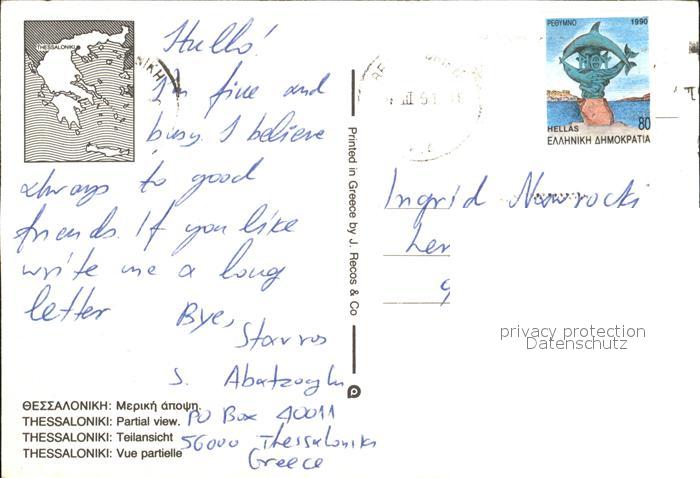 THESSALONIKI
Hullo!
I'm fine and
busy. I believe
always to good
friends. If you like
write me a long
letter
Bye,
Stavros
S. Abatzoghi
PO Box 40011
56000 Thessaloniki
Greece
ΘΕΣΣΑΛΟΝΙΚΗ: Μερική άποψη.
THESSALONIKI: Partial view.
THESSALONIKI: Teilansicht
THESSALONIKI: Vue partielle
Printed in Greece by J. Recos & Co
ΡΕΘΥΜΝΟ 1990
HELLAS 80
ΕΛΛΗΝΙΚΗ ΔΗΜΟΚΡΑΤΙΑ
Ingrid Nawrocki
Ler
9
privacy protection
Datenschutz